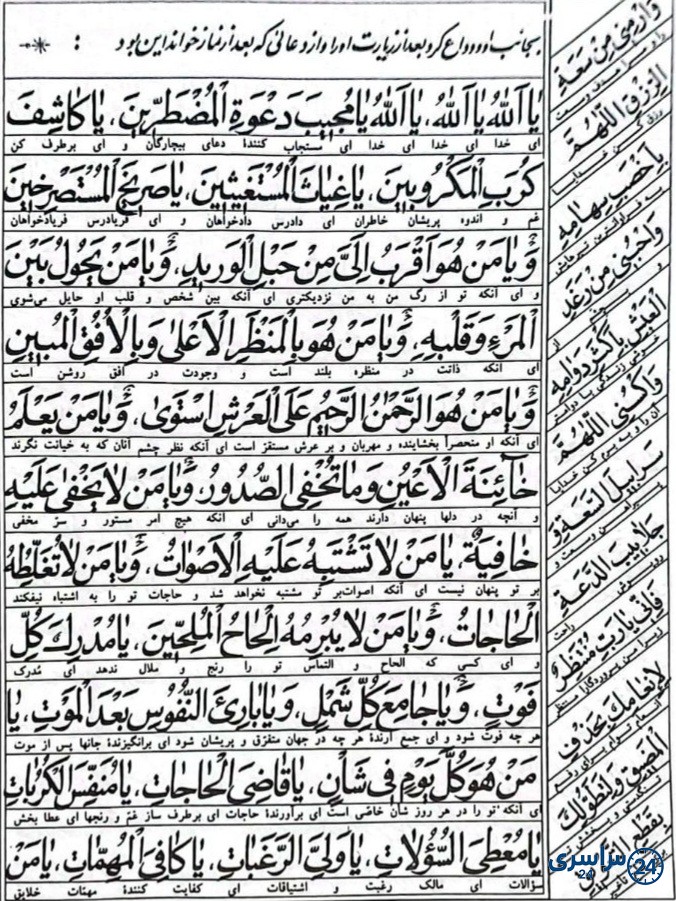 بجانب او وداع کرد بعد از زیارت او را و از دعائی که بعد از نماز خواند این بود :
یٰا اَللهُ یٰا اَللهُ، یٰا اَللهُ یٰا مُجیبَ دَعْوَةِ الْمُضْطَرّینَ، یٰا کٰاشِفَ
ای خدا ای خدا ای خدا ای مستجاب کنندهٔ دعای بیچارگان و ای برطرف کن
کُرَبِ الْمَکْرُوبینَ، یٰا غِیٰاثَ الْمُسْتَغیثینَ، یٰا صَریخَ الْمُسْتَصْرِخینَ
غم و اندوه پریشان خاطران ای دادرس دادخواهان و ای فریادرس فریادخواهان
وَ یٰا مَنْ هُوَ اَقْرَبُ اِلَیَّ مِنْ حَبْلِ الْوَریدِ، وَ یٰا مَنْ یَحُولُ بَیْنَ
و ای آنکه تو از رگ من به من نزدیکتری ای آنکه بین شخص و قلب او حایل می‌شوی
الْمَرْءِ وَ قَلْبِهِ، وَ یٰا مَنْ هُوَ بِالْمَنْظَرِ الْاَعْلیٰ وَ بِالْاُفُقِ الْمُبینِ
ای آنکه ذاتت در منظره بلند است و وجودت در افق روشن است
وَ یٰا مَنْ هُوَ الرَّحْمٰنُ الرَّحیمُ عَلَی الْعَرْشِ اسْتَویٰ، وَ یٰا مَنْ یَعْلَمُ
ای آنکه او منحصراً بخشاینده و مهربان و بر عرش مستقرّ است ای آنکه نظر چشم آنان که به خیانت نگرند
خٰآئِنَةَ الْاَعْیُنِ وَ مٰا تُخْفِی الصُّدُورُ، وَ یٰا مَنْ لاٰ یَخْفیٰ عَلَیْهِ
و آنچه در دلها پنهان دارند همه را می‌دانی ای آنکه هیچ امر مستور و سرّ مخفی
خٰافِیَةٌ، یٰا مَنْ لاٰ تَشْتَبِهُ عَلَیْهِ الْاَصْوٰاتُ، وَ یٰا مَنْ لاٰ تُغَلِّطُهُ
بر تو پنهان نیست ای آنکه اصوات بر تو مشتبه نخواهد شد و حاجات تو را به اشتباه نیفکند
الْحٰاجٰاتُ، وَ یٰا مَنْ لاٰ یُبْرِمُهُ اِلْحٰاحُ الْمُلِحّینَ، یٰا مُدْرِكَ کُلِّ
و ای کسی که الحاح و التماس تو را رنج و ملال ندهد ای مُدرک
فَوْتٍ، وَ یٰا جٰامِعَ کُلِّ شَمْلٍ، وَ یٰا بٰارِئَ النُّفُوسِ بَعْدَ الْمَوْتِ، یٰا
هر چه فوت شود و ای جمع آرندهٔ هر چه در جهان متفرّق و پریشان شود ای برانگیزندهٔ جانها پس از موت
مَنْ هُوَ کُلَّ یَوْمٍ فی شَأْنٍ، یٰا قٰاضِیَ الْحٰاجٰاتِ، یٰا مُنَفِّسَ الْکُرُبٰاتِ
ای آنکه تو را در هر روز شأن خاصّی است ای برآورندهٔ حاجات ای برطرف ساز غمّ و رنجها ای عطا بخش
یٰا مُعْطِیَ السُّؤُلاٰتِ، یٰا وَلِیَّ الرَّغَبٰاتِ، یٰا کٰافِیَ الْمُهِمّٰاتِ، یٰا مَنْ
سؤالات ای مالک رغبت و اشتیاقات ای کفایت کنندهٔ مهمّات خلایق
وَارْزُقْنی مِنْ سَعَةِ
الرِّزْقِ اَللّٰهُمَّ
سَرٰابیلَ السَّعَةِ وَ
جَلاٰبیبَ الدَّعَةِ
فَاِنّی یٰا رَبِّ مُنْتَظِرٌ
لِاِنْعٰامِكَ بِحَذْفِ
مراسری 24